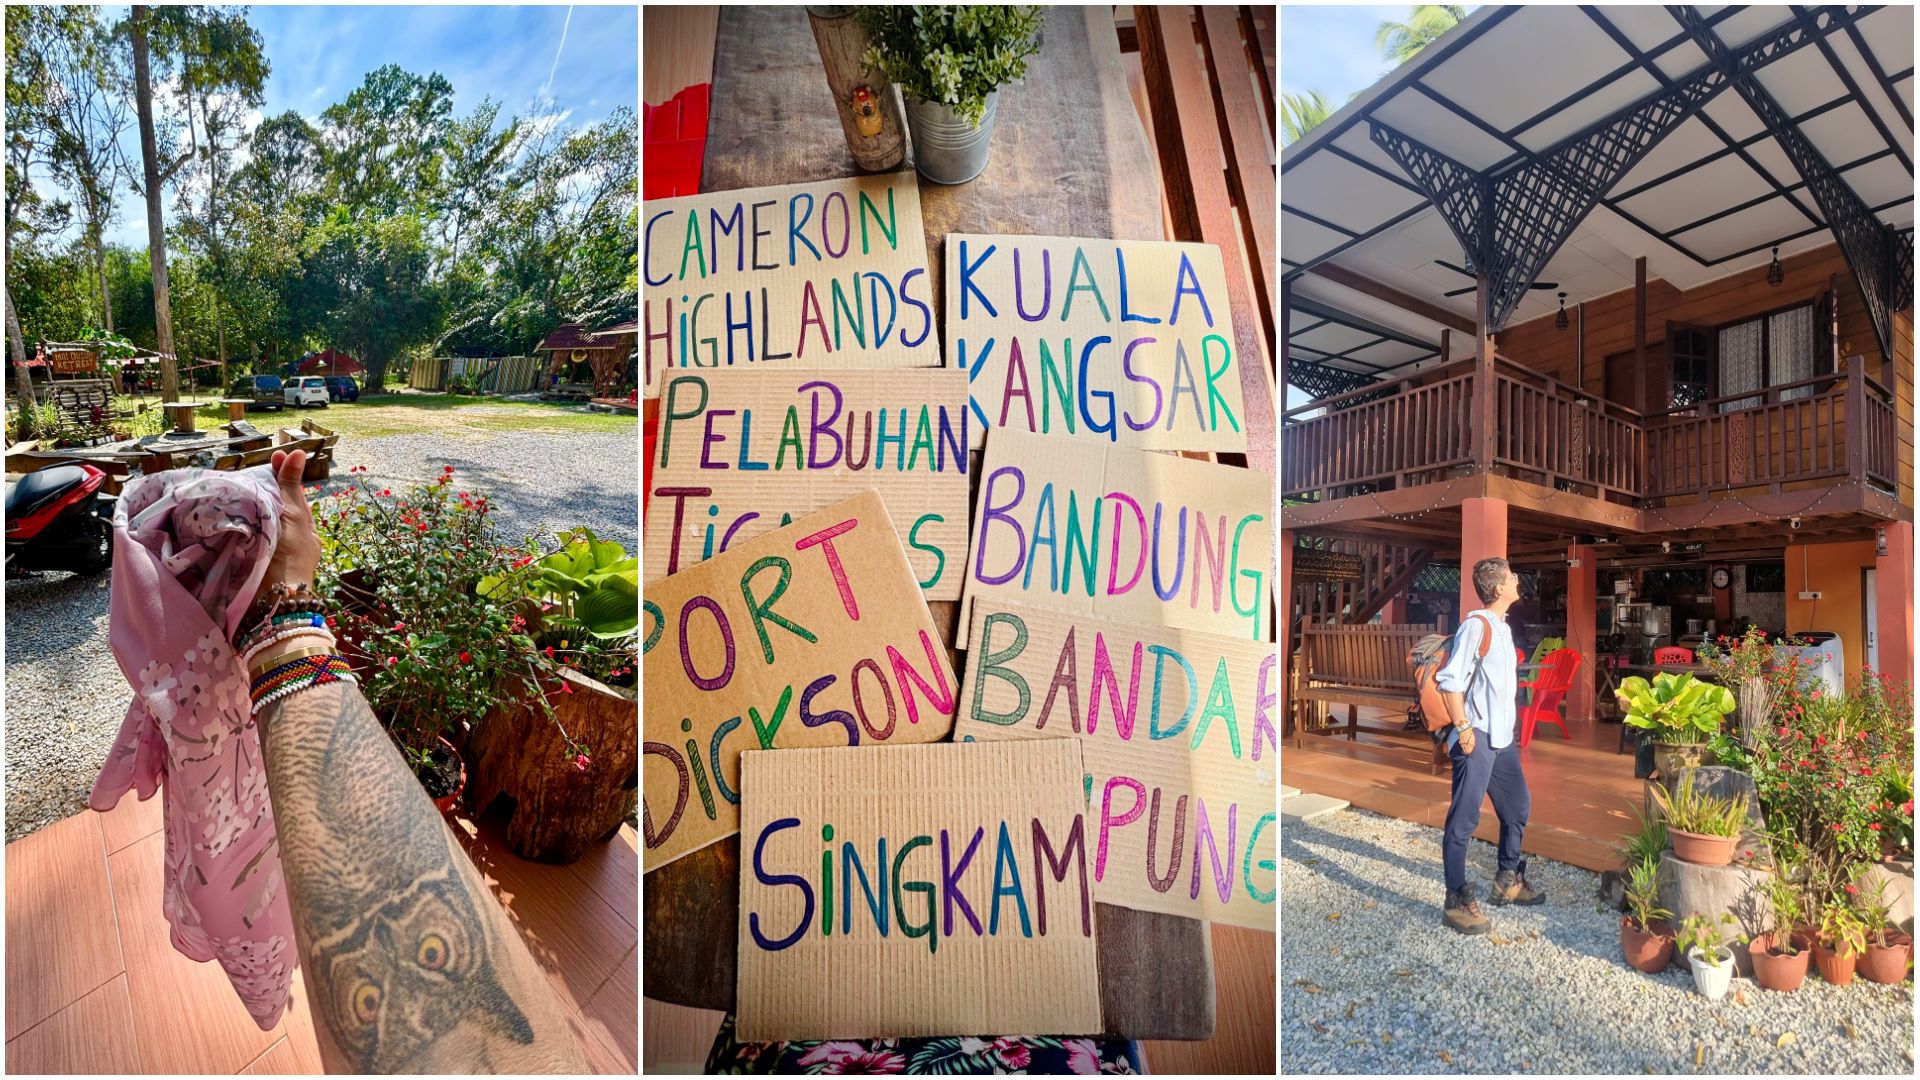 RETREAT
CAMERON
HiGHLANDS
KUALA
KANGSAR
PELABUHAN
BANDUNG
PORT
DiCKSON
BANDAR
SiNGKAM